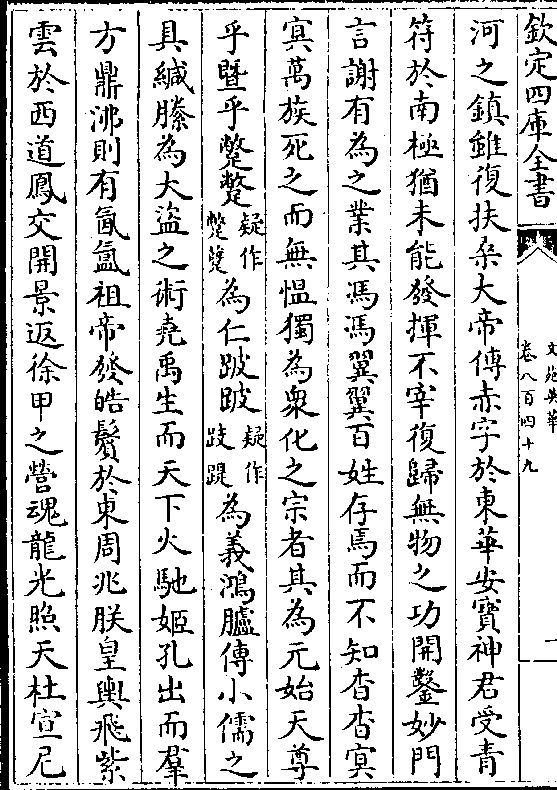 欽定四庫全書
文苑英華
卷八百四十九
一
河之鎮雖復扶桑大帝傳赤字於東華安寳神君受青
符於南極猶未能發揮不宰復歸無物之功開鑿妙門
言謝有為之業其馮馮翼翼百姓存焉而不知杳杳冥
冥萬族死之而無愠獨為衆化之宗者其為元始天尊
乎暨乎蹩蹩疑作蹩躠為仁跛跛疑作跂踶為義鴻臚傳小儒之
具緘縢為大盜之術堯禹生而天下火馳姬孔出而羣
方鼎沸則有氤氲祖帝發皓鬢於東周兆朕皇輿飛紫
雲於西道鳳交開景返徐甲之營魂龍光照天杜宣尼